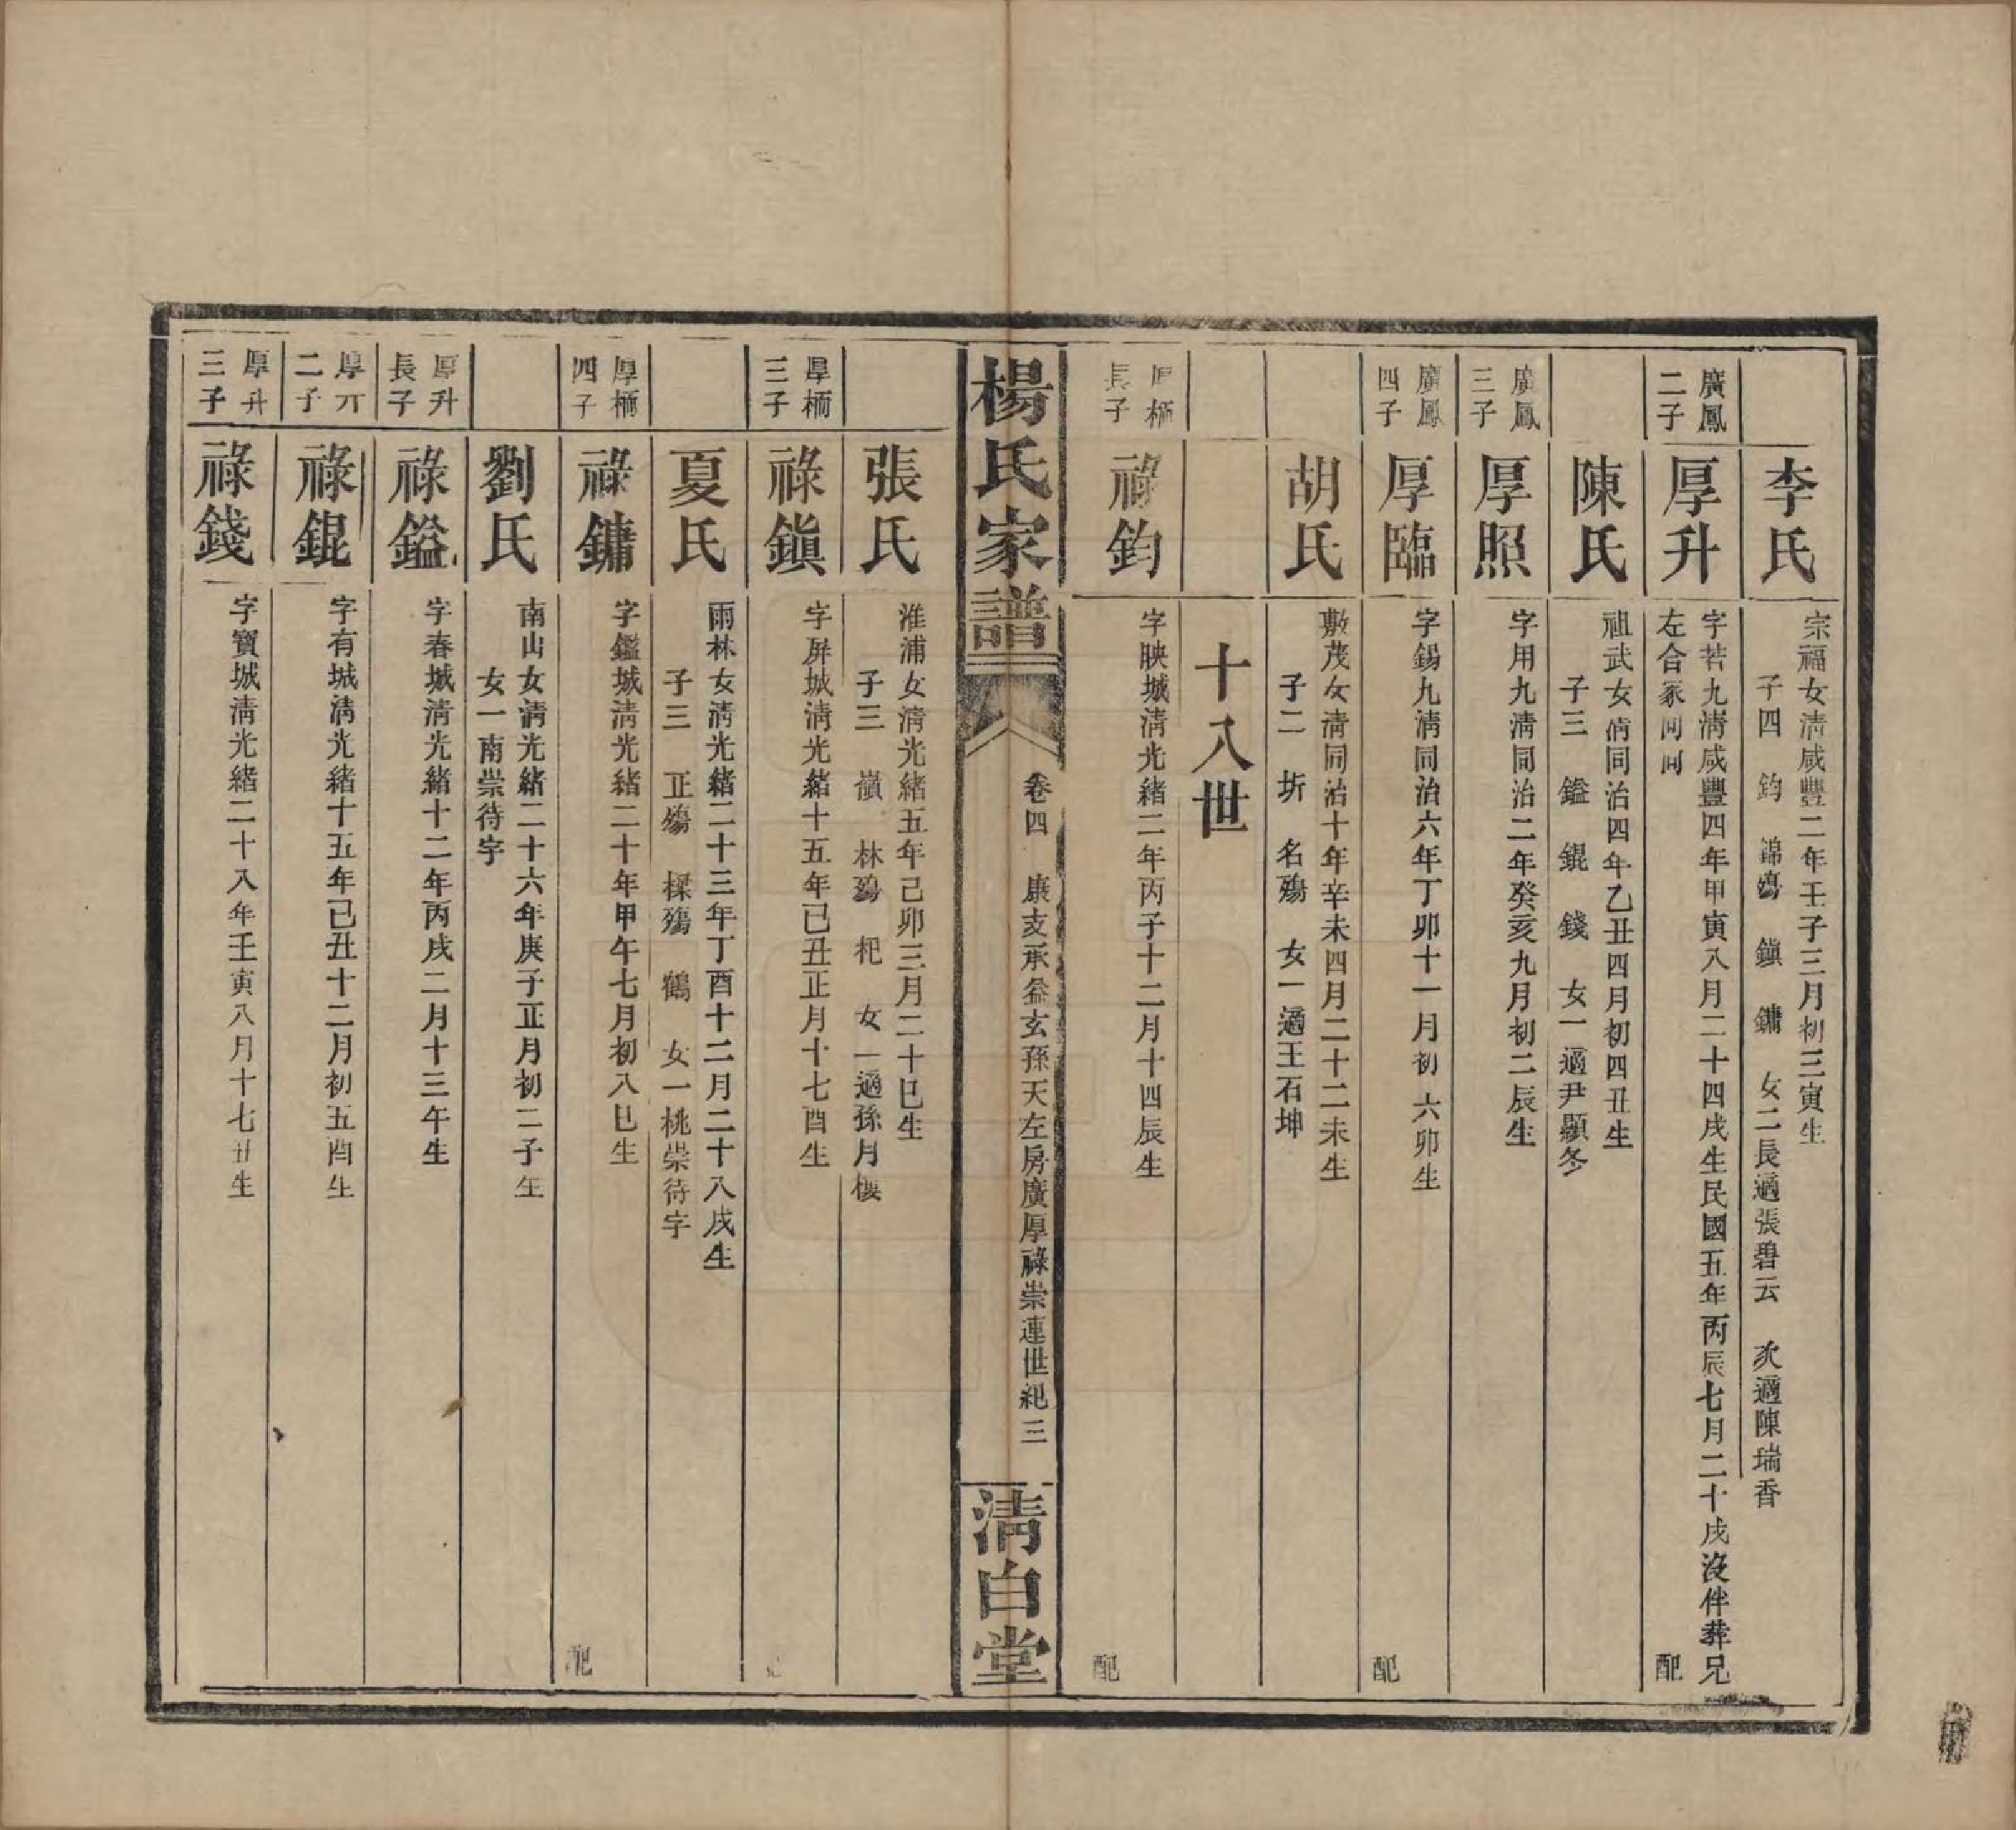 李氏
宗福女清咸豐二年壬子三月初三寅生
子四 鈞 錦殤 鎭 鏞 女二長適張碧云 次適陳瑞香
廣鳳
二子
厚升
字若九清咸豐四年甲寅八月二十四戌生民國五年丙辰七月二十戌沒伴葬兄
左合冢同向 配
陳氏
祖武女清同治四年乙丑四月初四丑生
子三 鎰 錕 錢 女一適尹顯冬
廣鳳
三子
厚照
字用九清同治二年癸亥九月初二辰生
廣鳳
四子
厚臨
字錫九清同治六年丁卯十一月初六卯生
配
胡氏
敷茂女清同治十年辛未四月二十二未生
子二 圻 名殤 女一適王石坤
十八世
厚栭
長子
祿鈞
字映城清光緒二年丙子十二月十四辰生
配
楊氏家譜
卷四 康支承益玄孫天左房廣厚祿崇連世紀三
清白堂
張氏
淮浦女清光緒五年己卯三月二十巳生
子三 嶺 林殤 杞 女一適孫月樓
厚栭
三子
祿鎭
字屏城清光緒十五年己丑正月十七酉生
夏氏
雨林女清光緒二十三年丁酉十二月二十八戌生
子三 正殤 樑殤 鶴 女一桃崇待字
厚栭
四子
祿鏞
字鑑城清光緒二十年甲午七月初八巳生
配
劉氏
南山女清光緒二十六年庚子正月初二子生
女一南崇待字
厚升
長子
祿鎰
字春城清光緒十二年丙戌二月十三午生
厚升
二子
祿錕
字有城清光緒十五年己丑十二月初五酉生
厚升
三子
祿錢
字寶城清光緒二十八年壬寅八月十七丑生